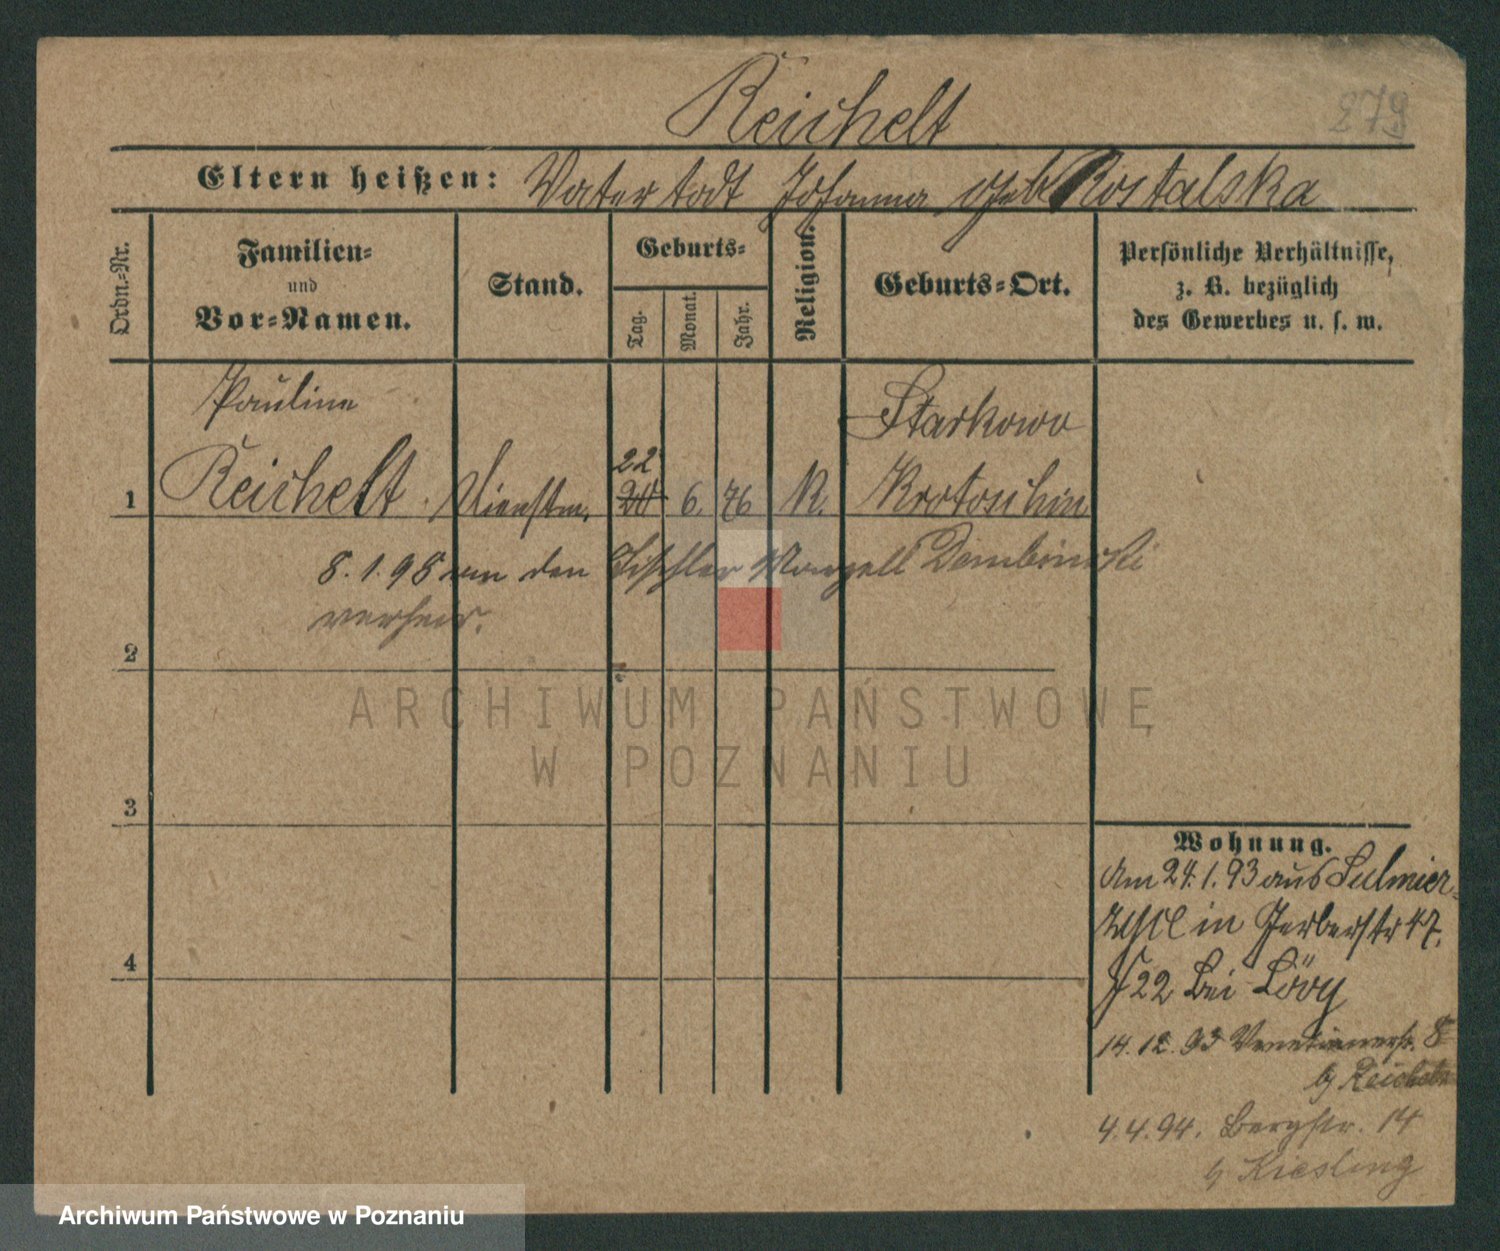 Reichelt
279
Eltern heißen: Vater todt Johanna geb Rostalska
Ordn.-Nr.
Familien-
und
Vor-Namen.
Stand.
Geburts-
Tag.
Monat.
Jahr.
Religion.
Geburts-Ort.
Persönliche Verhältnisse,
z. B. bezüglich
des Gewerbes u. s. w.
Pauline
Starkowo
22
1 Reichelt Dienstm. 20 6. 76 K. Krotoschin
8.1.98 an den Tischler Dembinski
verheir.
2
ARCHIWUM PAŃSTWOWE
W POZNANIU
3
4
Wohnung.
Am 24.1.93 aus Sulmier-
zyce in Gerberstr 47.
22 bei Lövy
14.12.93 Venetianerstr. 8
b/ Reichelt
4.4.94. Bergstr. 14
b/ Kiesling
Archiwum Państwowe w Poznaniu